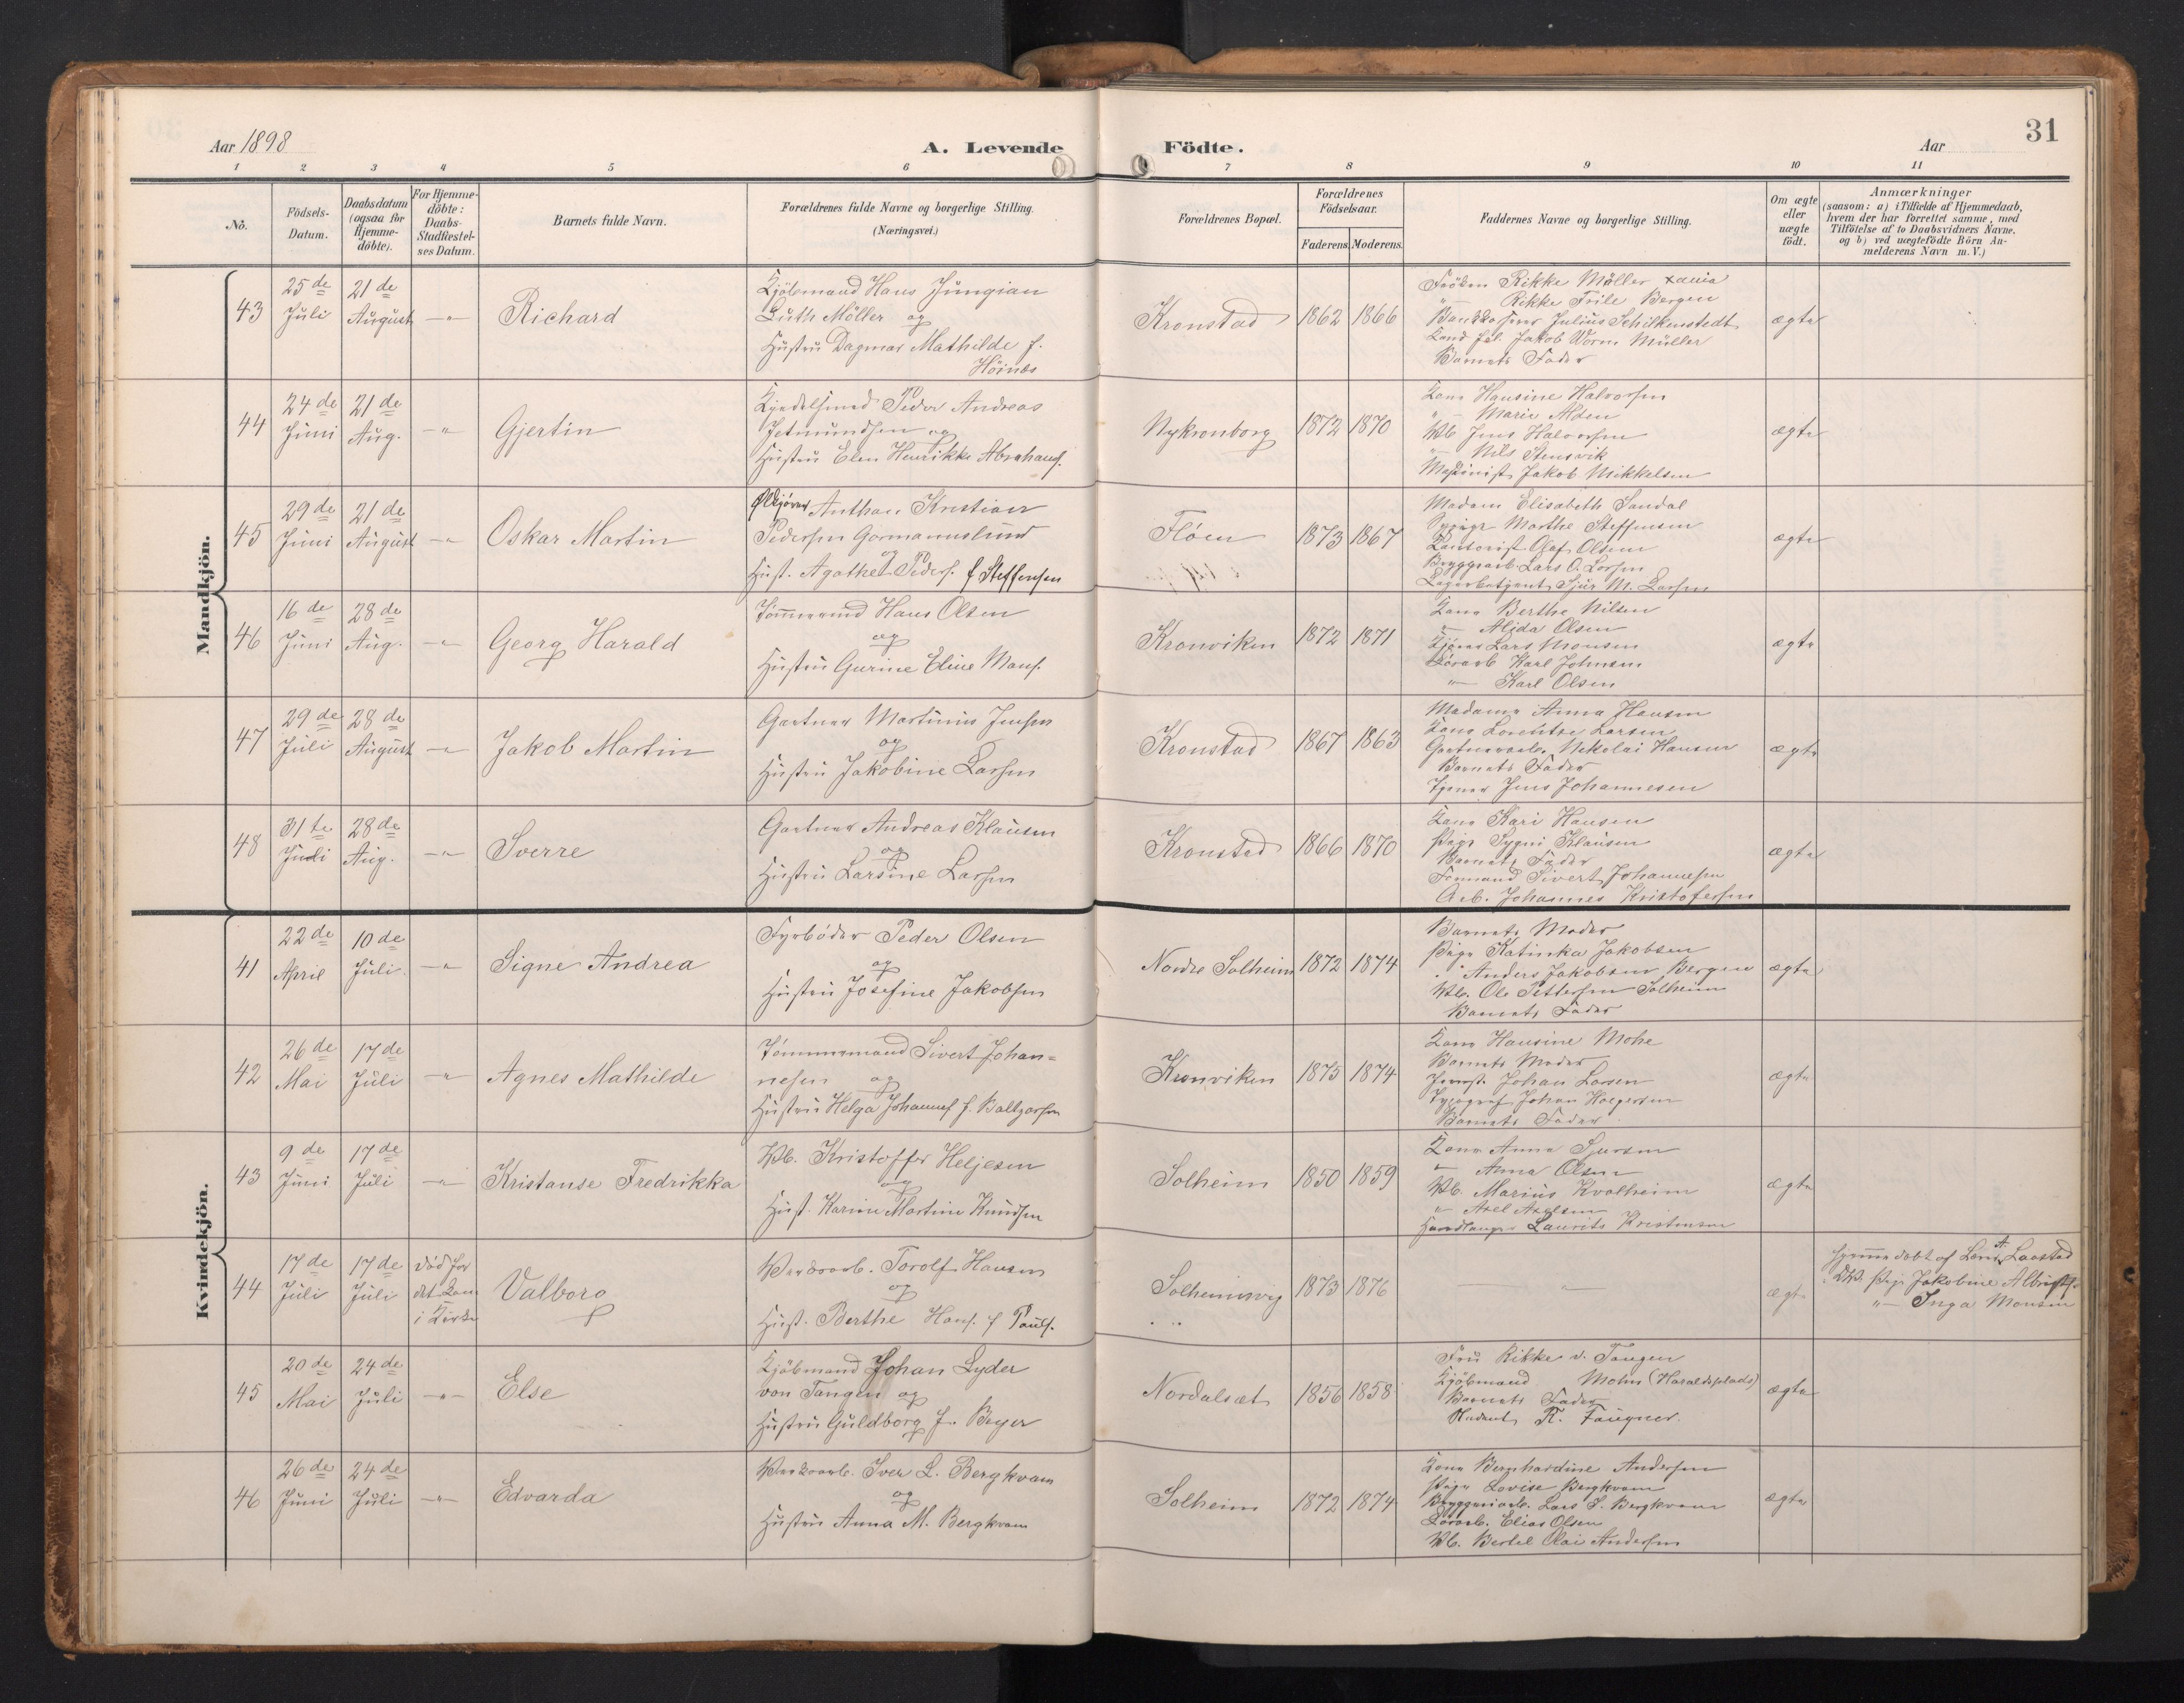 Aar 1898
A. Levende
Födte.
Aar
31
1 2 3 4 5 6 7 8 9 10 11
No.
Födsels-
Datum.
Daabsdatum
(ogsaa for
Hjemme-
döbte).
For Hjemme-
döbte:
Daabs-
Stadfæstel-
ses Datum.
Barnets fulde Navn.
Forældrenes fulde Navne og borgerlige Stilling.
(Næringsvei.)
Forældrenes Bopæl.
Forældrenes
Födselsaar.
Faderens. Moderens.
Faddernes Navne og borgerlige Stilling.
Om ægte
eller
uægte
födt.
Anmærkninger
(saasom: a) i Tilfælde af Hjemmedaab,
hvem der har forrettet samme, med
Tilföielse af to Daabsvidners Navne.
og b) ved uægtefödte Börn An-
melderens Navn m. V.)
Mandkjön.
43
25 de
Juli
21 de
August
-"-
Richard
Kjöbmand Hans Jüngian
Luth Möller og
Hustru Dagmar Mathilde f.
Höinæs
Kronstad
1862 1866
Fröken Rikke Möller
"- Rikke Friele Bergen
Julius Schilkenstedt
Kand fil. Jakob Worm Müller
Barnets Fader
ægte
44
24 de
Juni
21 de
Aug.
-"-
Gjertin
Kjedelsmed Peder Andreas
Jetmundsen og
Hustru Elen Henrikke Abrahams.
Nykronborg
1872 1870
Kone Hansine Halvorsen
"- Marie Alden
Vb Jens Halvorsen
"- Nils Stensvik
Maskinist Jakob Mikkelsen
ægte
45
29 de
Juni
21 de
August
-"-
Oskar Martin
Ølkjører Anthon Kristian
Pedersen Gormannslund
og
Hust. Agathe Peders. f Steffensen
Fløen
1873 1867
Madam Elisabeth Sandal
Sypige Marthe Steffensen
Kontorist Olaf Olsen
Bryggeiarb Lars O. Larsen
Lagerbetjent Sjur M. Larsen
ægte
46
16 de
Juni
28 de
Aug.
-"-
Georg Harald
Tömmermd Hans Olsen
og
Hustru Gurine Eline Mons.
Kronviken
1872 1871
Kone Berthe Nilsen
"- Alida Olsen
Kjører Lars Monsen
Karl Johnsen
"- Karl Olsen
ægte
47
29 de
Juli
28 de
August
-"-
Jakob Martin
Gartner Martinus Jensen
og
Hustru Jakobine Larsen
Kronstad
1867 1863
Madame Anna Hansen
Kone Lorentze Larsen
Gartnerarb. Nikolai Hansen
Barnets Fader
Tjener Jens Johannesen
ægte
48
31 te
Juli
28 de
Aug.
-"-
Sverre
Gartner Andreas Klausen
og
Hustru Larsine Larsen
Kronstad
1866 1870
Kone Kari Hansen
Pige Sygni Klausen
Barnets Fader
Formand Sivert Johannesen
Arb. Johannes Kristofersen
ægte
Kvindekjön.
41
22 de
April
10 de
Juli
-"-
Signe Andrea
Fyrböder Peder Olsen
og
Hustru Josefine Jakobsen
Nordre Solheim
1872 1874
Barnets Moder
Pige Katinka Jakobsen
Anders Jakobsen Bergen
Vb. Ole Pettersen Solheim
Barnets Fader
ægte
42
26 de
Mai
17 de
Juli
-"-
Agnes Mathilde
Tömmermand Sivert Johan=
nesen og
Hustru Helga Johannes f. Baltzersen
Kronviken
1875 1874
Kone Hansine Mohe
Barnets Moder
Johan Larsen
Typograf Johan Holgersen
Barnets Fader
ægte
43
9 de
Juni
17 de
Juli
-"-
Kristanse Fredrikka
Vb. Kristoffer Heljesen
og
Hust. Karine Martine Knudsen
Solheim
1850 1859
Kone Anna Sjursen
"- Anna Olsen
Vb. Marius Kvalheim
"- Axel Axelsen
Handlanger Laurits Kristensen
ægte
44
17 de
Juli
17 de
Juli
död før
det kom
i Kirke
Valborg
Værksarb. Torolf Hansen
og
Hust. Berthe Hans. f Pauls.
Solheimsvig
1873 1876
-"-
ægte
hjemmedøbt af Lene A. Laastad
DV. Pige Jakobine Albrigts.
"- Inga Monsen
45
20 de
Mai
24 de
Juli
-"-
Else
Kjöbmand Johan Lyder
von Tangen og
Hustru Guldborg f. Beyer
Nordalsæt
1856 1858
Fru Rikke v. Tangen
Kjöbmand Mohn (Haraldsplads)
Barnets Fader
Student R. Faugner.
ægte
46
26 de
Juni
24 de
Juli
-"-
Edvarda
Værksarb. Iver L. Bergkvam
og
Hustru Anna M. Bergkvam
Solheim
1872 1874
Kone Bernhardine Andersen
Pige Lovise Bergkvam
Bryggeriarb. Lars I. Bergkvam
Elias Olsen
Vb. Bertel Olai Andersen
ægte